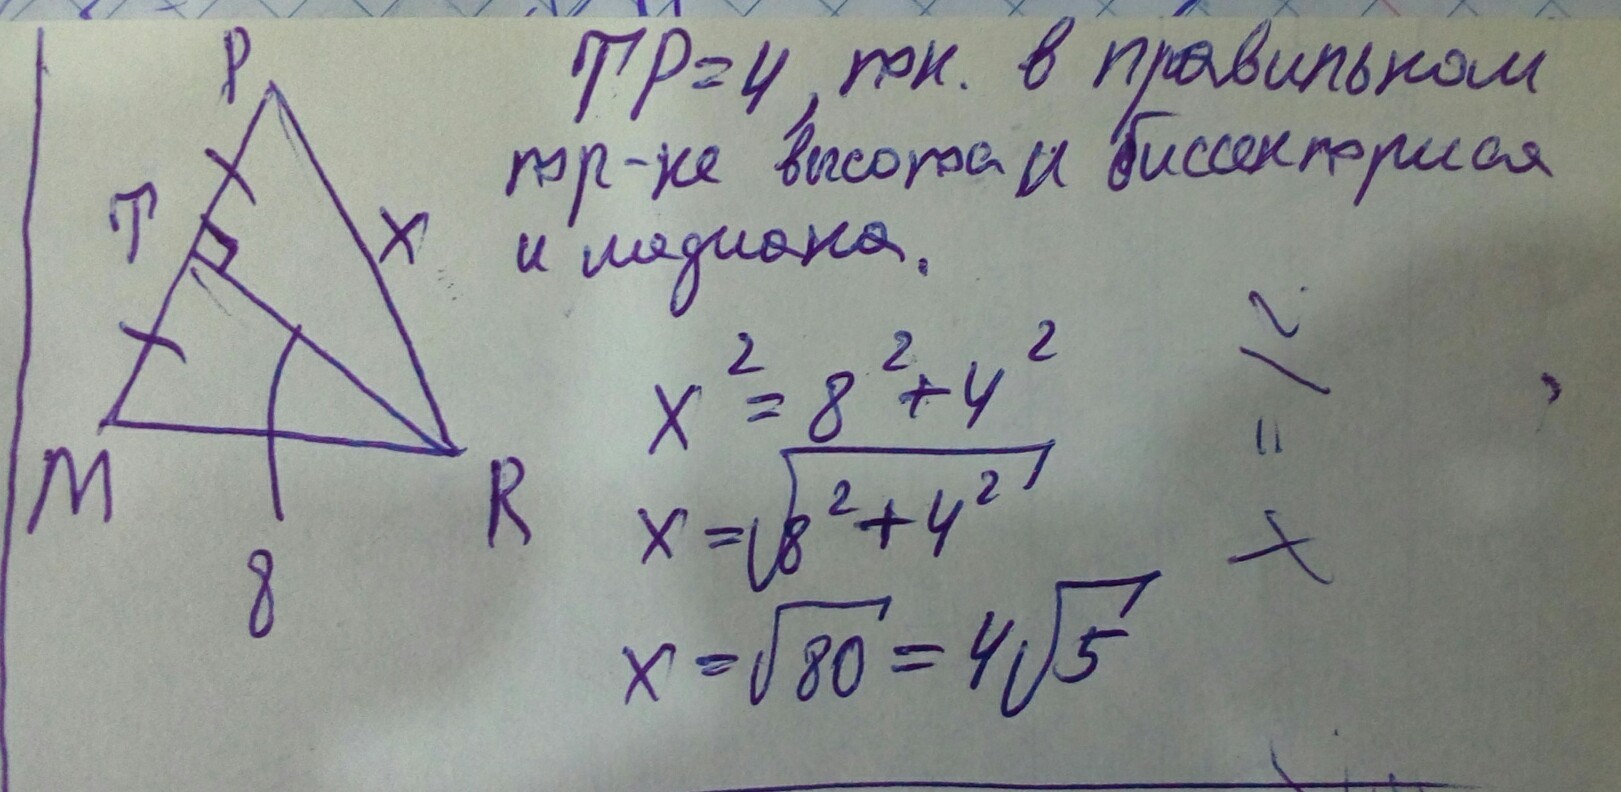 TP=4, т.к. в правильном
тр-ке высота и биссектриса
и медиана.
P
T
X
M
R
8
x²=8²+4²
x=√8²+4²
x=√80=4√5